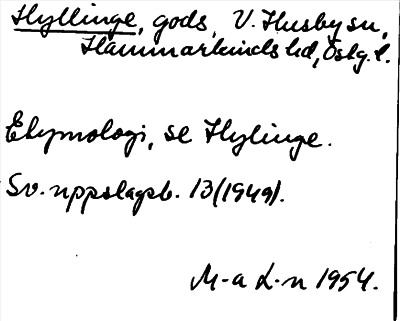 Hyllinge, gods, V. Husby sn,
Hammarkinds hd, Östg. l.
Etymologi, se Hylinge.
Sv. uppslagsb. 13 (1949).
M-a L-n 1954.